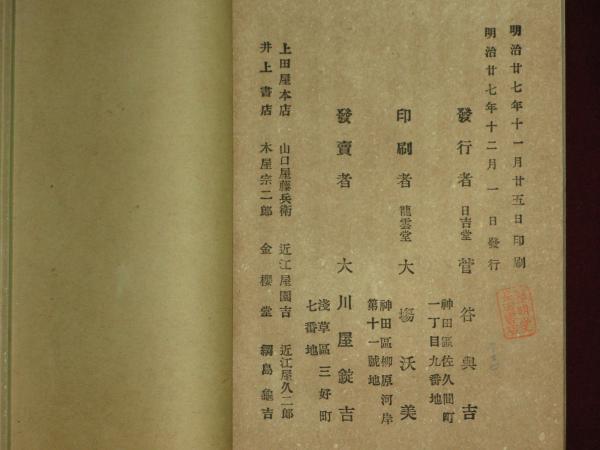 明治廿七年十一月廿五日印刷
明治廿七年十二月一日發行
發行者 日吉堂 菅谷與吉
神田區佐久間町
一丁目九番地
印刷者 龍雲堂 大塲沃美
神田區柳原河岸
第十一號地
發賣者 大川屋錠吉
淺草區三好町
七番地
上田屋本店 山口屋藤兵衛 近江屋園吉 近江屋久二郎
井上書店 木屋宗二郎 金櫻堂 綱島龜吉